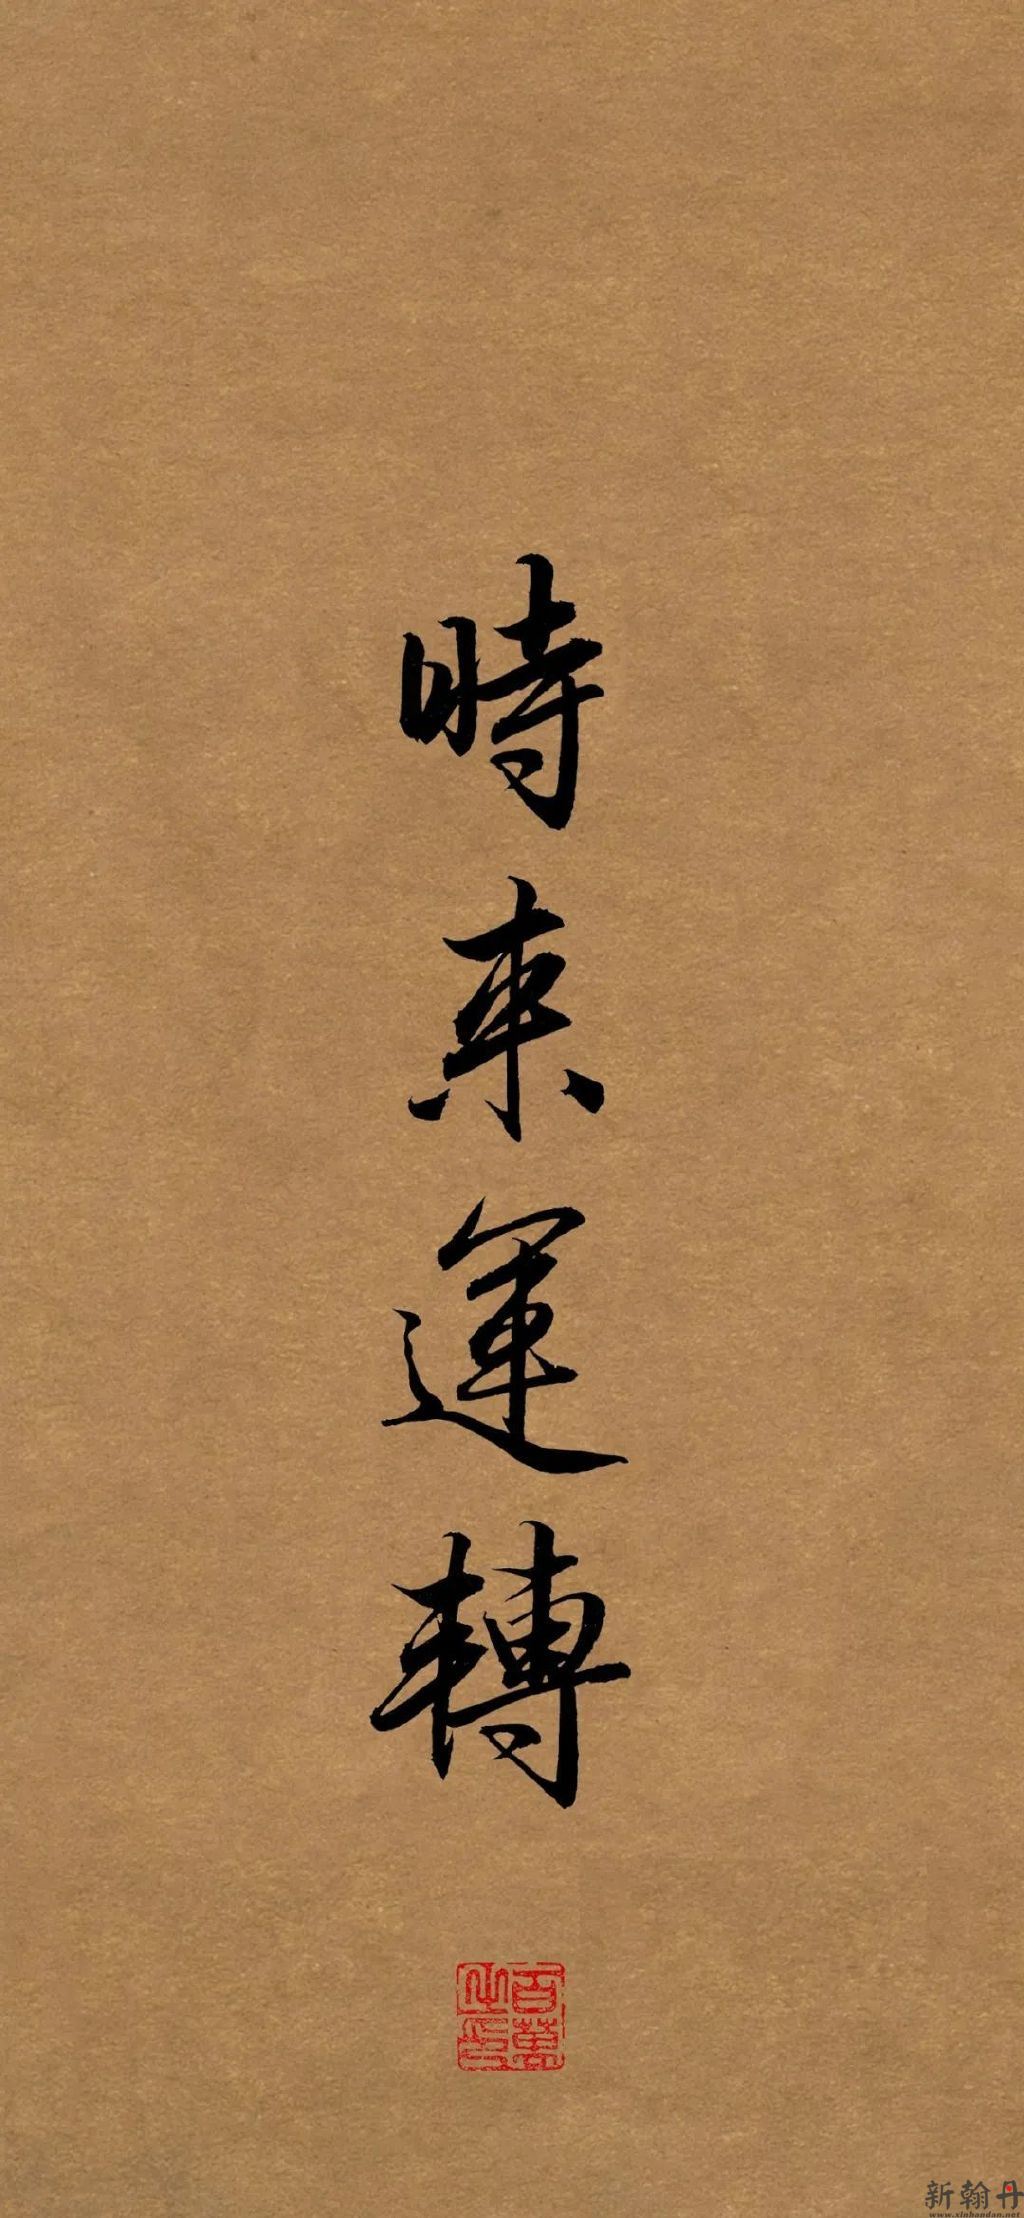 時来運轉
百萬之印
新翰丹
www.xinhandan.net